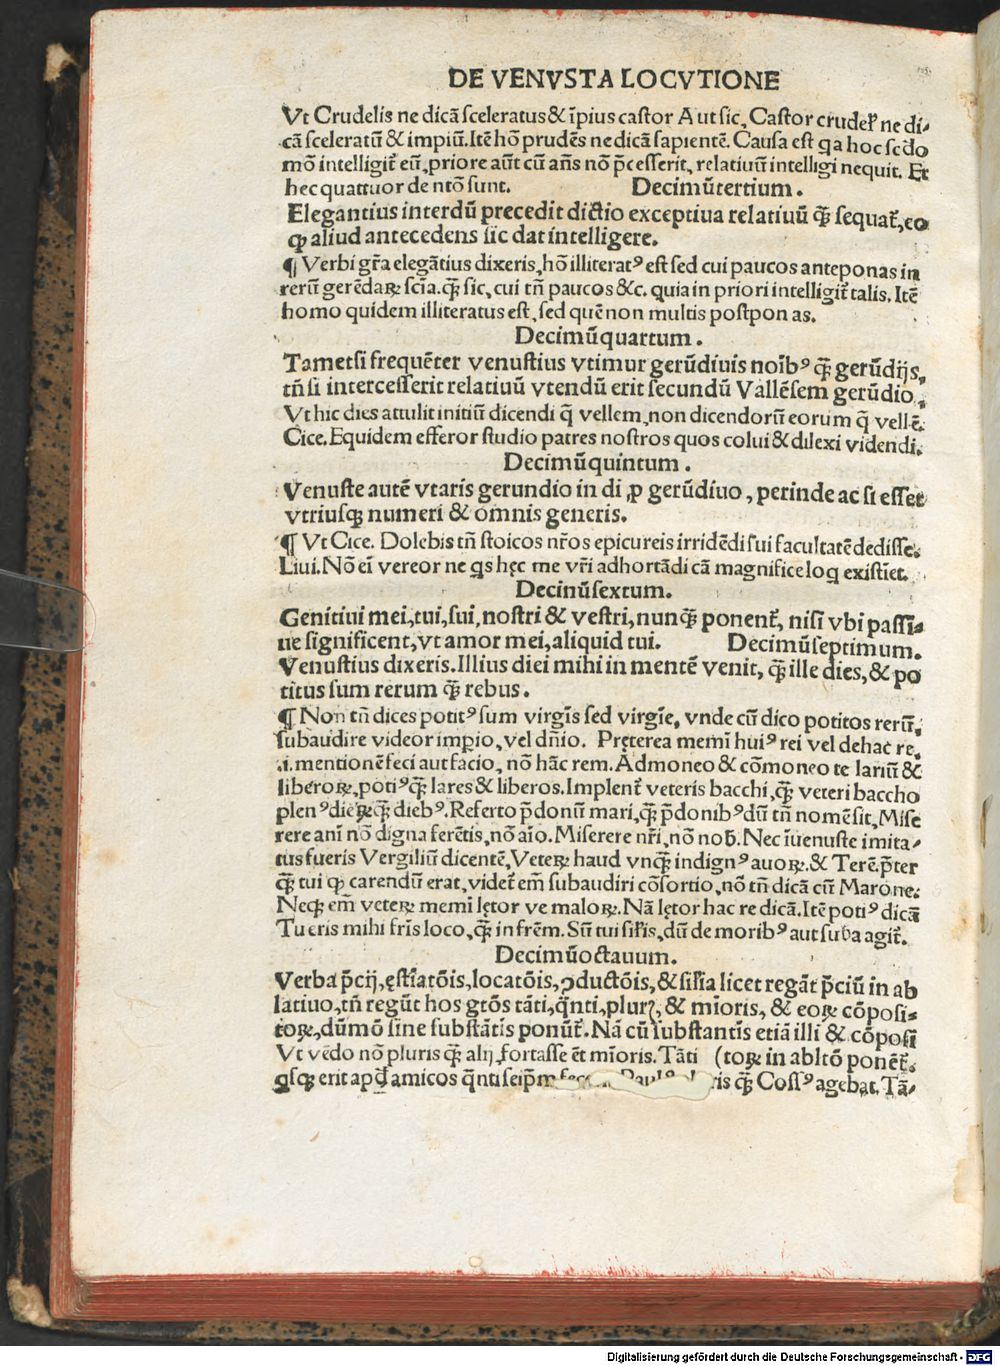 DE VENVSTA LOCVTIONE
Vt Crudelis ne dicā sceleratus & īpius castor Aut sic, Castor crudel̛ ne di⸗
cā sceleratū & impiū. Itē hō prudēs ne dicā sapientē. Causa est qa hoc scdo
mō intelligit̛ eū, priore aūt cū añs nō p̄cesserit, relatiuū intelligi nequit. Et
hec quattuor de ntō sunt. Decimūtertium.
Elegantius interdū precedit dictio exceptiua relatiuū q̄ꝫ sequat̛, eo
ꝙ aliud antecedens sic dat intelligere.
¶ Verbi gr̄a elegātius dixeris, hō illiteratꝰ est sed cui paucos anteponas in
rerū gerēdaꝝ scīa. q̄ꝫ sic, cui tn̄ paucos &c. quia in priori intelligit̛ talis. Itē
homo quidem illiteratus est, sed quē non multis postponas.
Decimūquartum.
Tametsi frequēter venustius vtimur gerūdiuis noībꝰ q̄ꝫ gerūdijs,
tn̄ si intercesserit relatiuū vtendū erit secundū Vallēsem gerūdio.
Vt hic dies attulit initiū dicendi q̄ vellem, non dicendorū eorum q̄ vellē.
Cice. Equidem efferor studio patres nostros quos colui & dilexi videndi.
Decimūquintum.
Venuste autē vtaris gerundio in di ꝓ gerūdiuo, perinde ac si esset
vtriusqꝫ numeri & omnis generis.
¶ Vt Cice. Dolebis tn̄ stoicos nr̄os epicureis irridēdi sui facultatē dedisse.
Liui. Nō eī vereor ne qs hęc me vr̄i adhortādi cā magnifice loq existīet.
Decinūsextum.
Genitiui mei, tui, sui, nostri & vestri, nunq̄ꝫ ponent̛, nisi vbi passi⸗
ne significent, vt amor mei, aliquid tui. Decimūseptimum.
Venustius dixeris. Illius diei mihi in mentē venit, q̄ꝫ ille dies, & po
titus sum rerum q̄ꝫ rebus.
¶ Non tn̄ dices potitꝰ sum virgīs sed virgīe, vnde cū dico potitos rerū,
subaudire videor impio, vel dn̄io. Pręterea memī huiꝰ rei vel de hac re
.i. mentionē feci aut facio, nō hāc rem. Admoneo & cōmoneo te lariū &
liberoꝝ, potiꝰ q̄ꝫ lares & liberos. Implent̛ veteris bacchi, q̄ꝫ veteri baccho
plenꝰ dieꝝ q̄ꝫ diebꝰ. Referto p̄donū mari, q̄ꝫ p̄donibꝰ dū tn̄ nomē sit, Mise
rere anī nō digna ferētis, nō aīo. Miserere nr̄i, nō nob̄. Nec īuenuste imita⸗
tus fueris Vergiliū dicentē, Veteꝝ haud vnq̄ꝫ indignꝰ auoꝝ. & Terē. p̄ter
q̄ꝫ tui ꝙ carendū erat, videt̛ em̄ subaudiri cōsortio, nō tn̄ dicā cū Marone.
Neqꝫ em̄ veteꝝ memī lętor ve maloꝝ. Nā lętor hac re dicā. Itē potiꝰ dicā
Tu eris mihi fr̄is loco, q̄ꝫ in frēm. Sū tui sil̛is, dū de moribꝰ aut suba agit̛.
Decimūoctauum.
Verba p̄cij, ęstīatōis, locatōis, ↄductōis, & sil̛ia licet regāt p̄ciū in ab
latiuo, tn̄ regūt hos gtōs tāti, q̄nti, plurꝭ, & mīoris, & eoꝝ cōposi⸗
toꝝ, dūmō sine substātis ponūt̛. Nā cū substantīs etiā illi & cōposi
Vt vēdo nō pluris q̄ꝫ alij, fortasse ēt mīoris. Tāti (toꝝ in abltō ponēt̛.
qsqꝫ erit apd̄ amicos q̄nti seip̄m Paulꝰ q̄ꝫ Cossꝰ agebat. Tā⸗
Digitalisierung gefördert durch die Deutsche Forschungsgemeinschaft - DFG